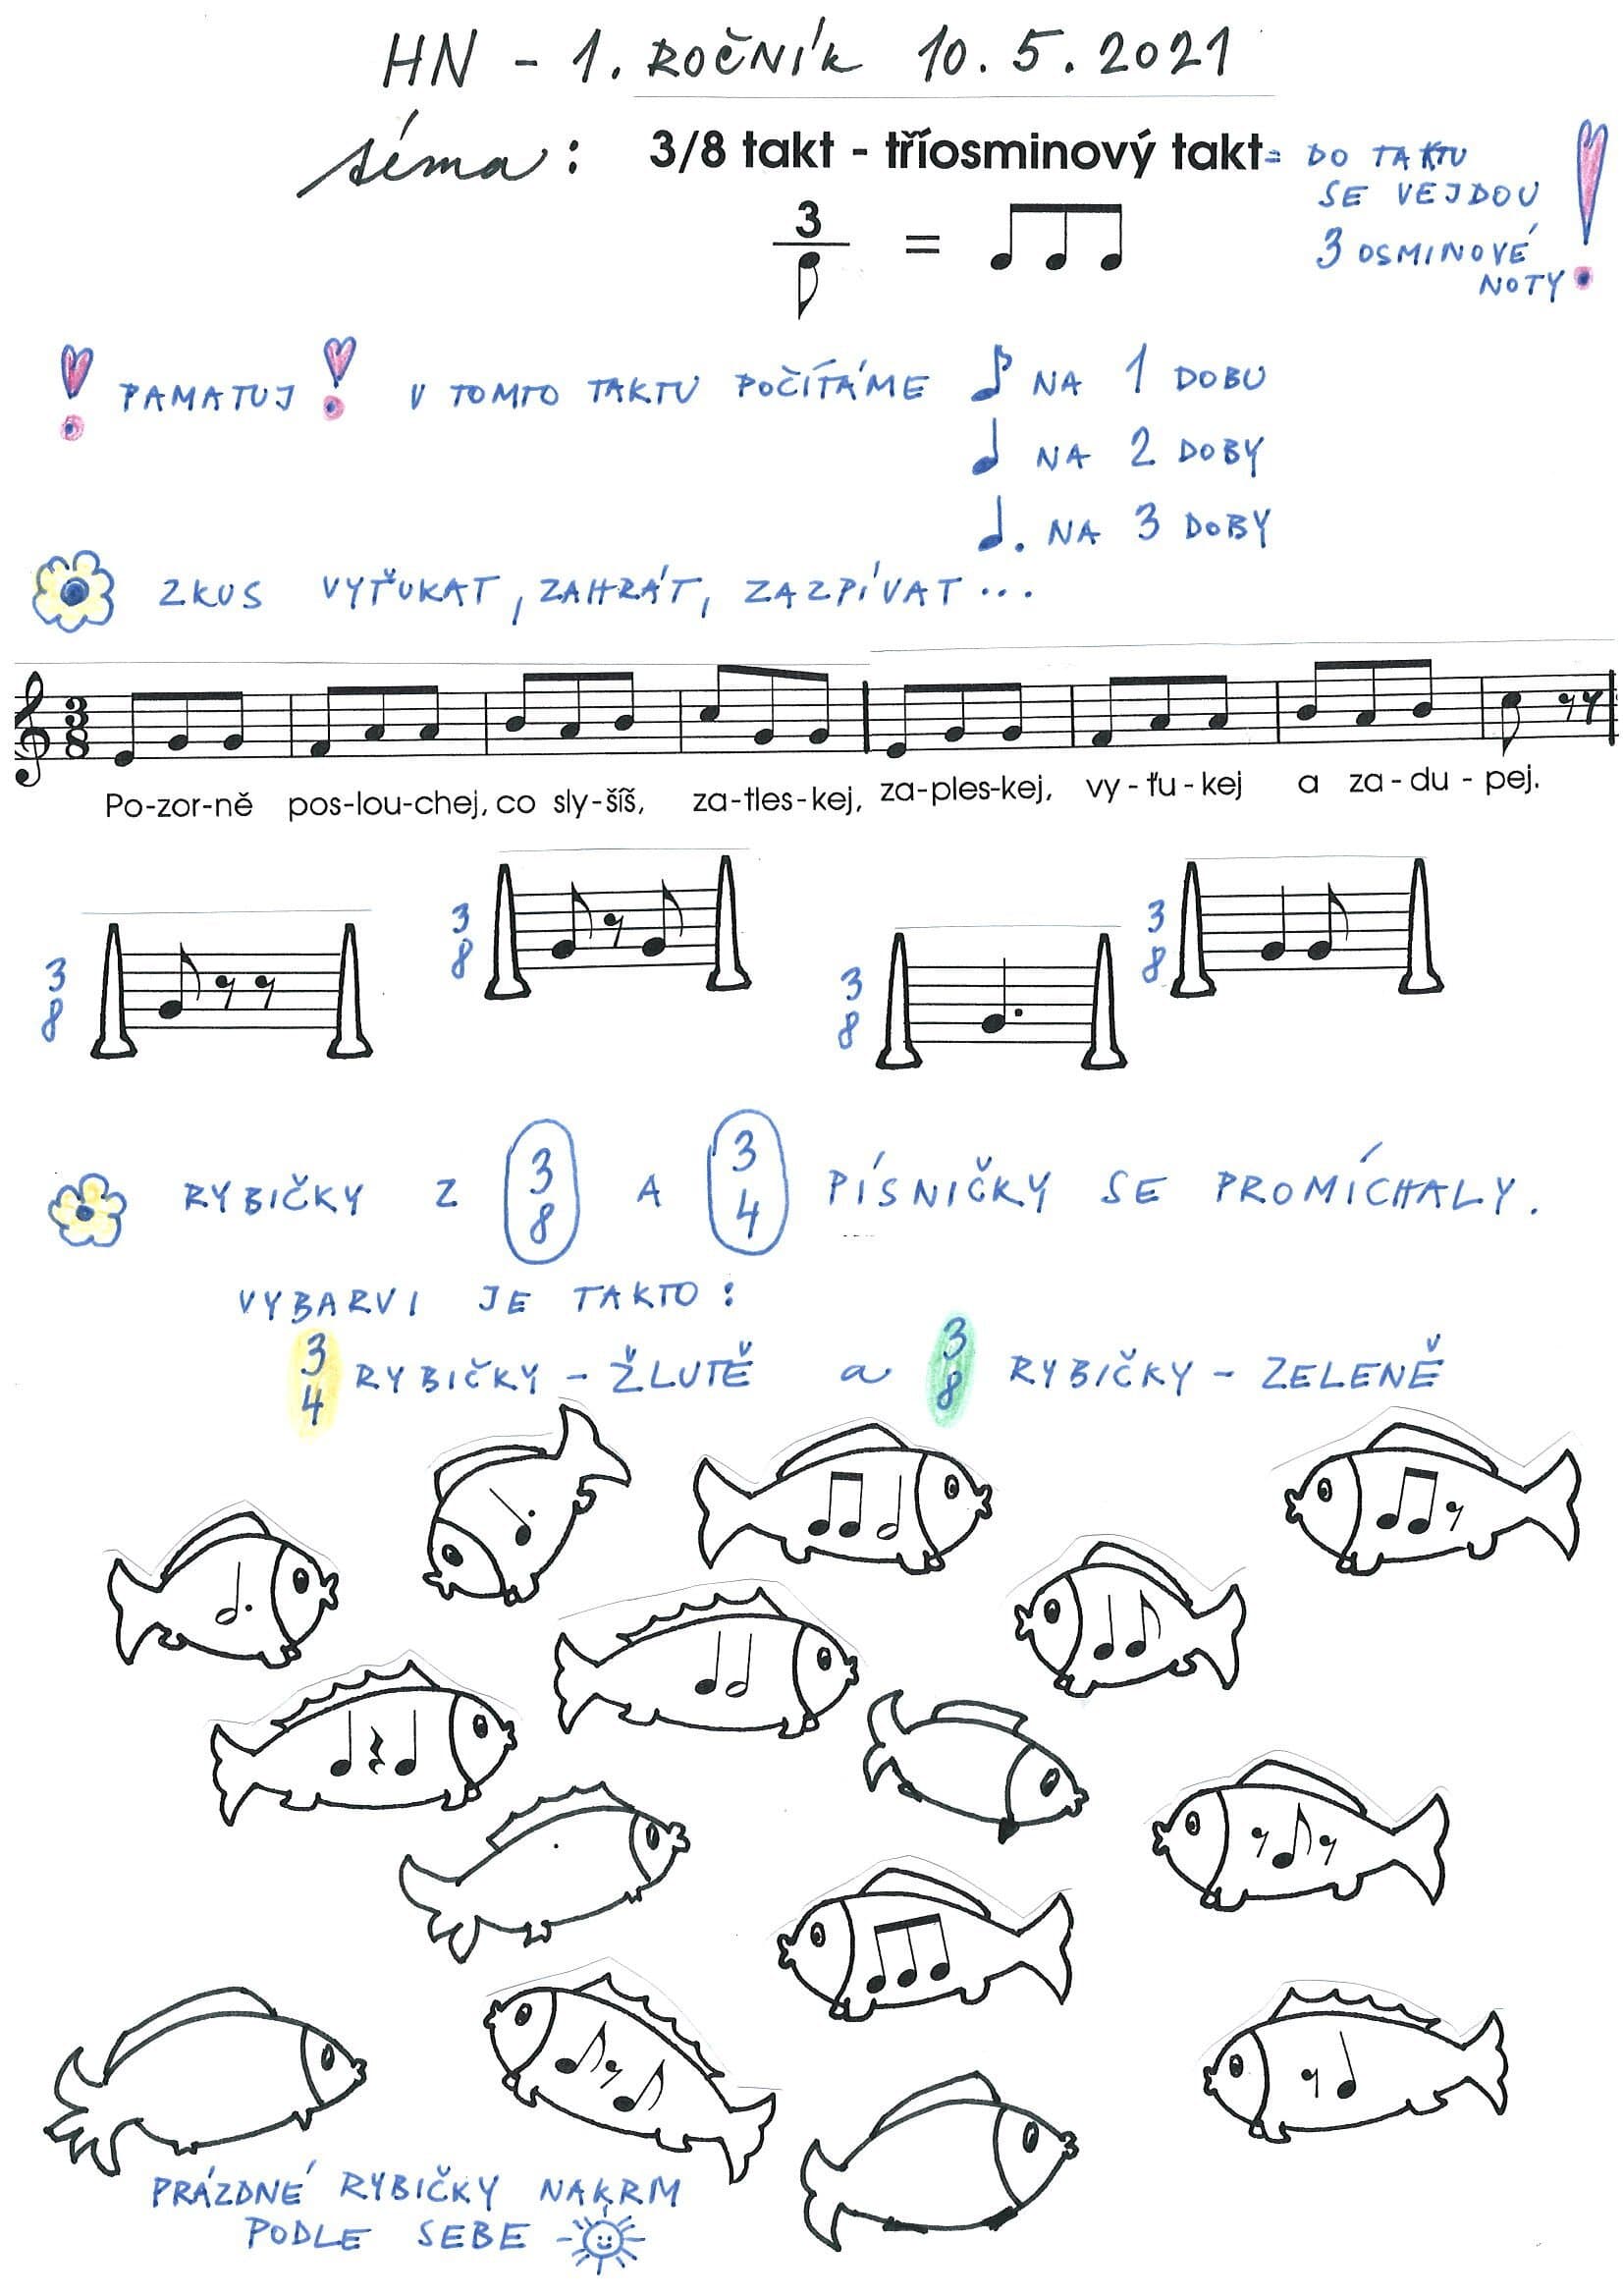 HN - 1. ROČNÍK 10. 5. 2021
téma: 3/8 takt - tříosminový takt = DO TAKTU
SE VEJDOU
3 OSMINOVÉ
NOTY
3
=
! PAMATUJ ! V TOMTO TAKTU POČÍTÁME ♪ NA 1 DOBU
♩ NA 2 DOBY
♩. NA 3 DOBY
ZKUS VYŤUKAT, ZAHRÁT, ZAZPÍVAT...
3
8
Po-zor-ně pos-lou-chej, co sly-šíš, za-tles-kej, za-ples-kej, vy-ťu-kej a za-du-pej.
3
8
3
8
3
8
3
8
RYBIČKY Z 3/8 A 3/4 PÍSNIČKY SE PROMÍCHALY.
VYBARVI JE TAKTO:
3/4 RYBIČKY - ŽLUTĚ a 3/8 RYBIČKY - ZELENĚ
PRÁZDNÉ RYBIČKY NAKRM
PODLE SEBE